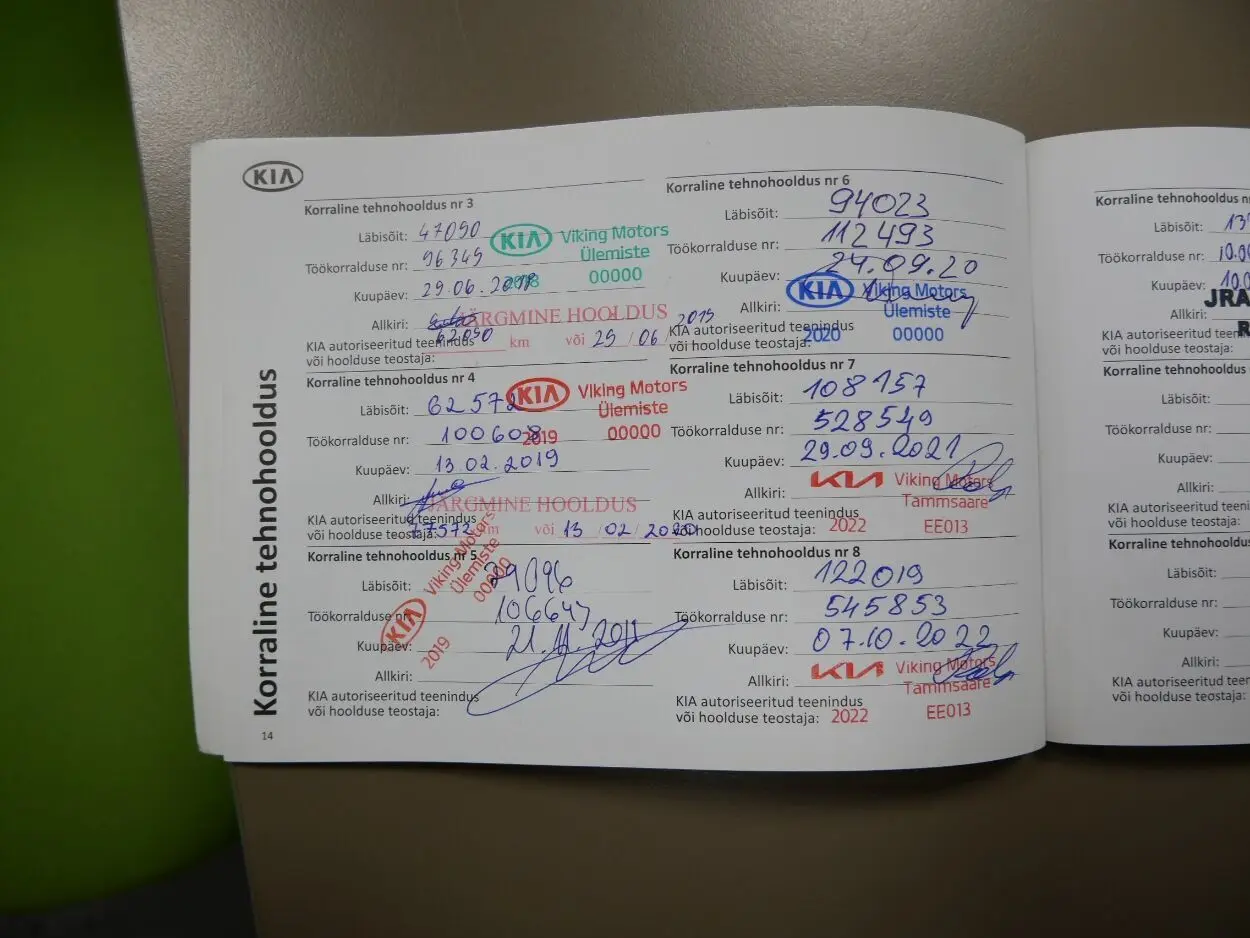 KIA
Korraline tehnohooldus
Korraline tehnohooldus nr 3
Läbisõit: 47090
Töökorralduse nr: 96345
Kuupäev: 29.06.2018
Allkiri:
KIA autoriseeritud teenindus
või hoolduse teostaja:
KIA Viking Motors
Ülemiste
2018 00000
JÄRGMINE HOOLDUS
62090 km või 29/06/2019
Korraline tehnohooldus nr 4
Läbisõit: 62572
Töökorralduse nr: 100608
Kuupäev: 13.02.2019
Allkiri:
KIA autoriseeritud teenindus
või hoolduse teostaja:
KIA Viking Motors
Ülemiste
2019 00000
JÄRGMINE HOOLDUS
77572 km või 13/02/2020
Korraline tehnohooldus nr 5
Läbisõit: 79096
Töökorralduse nr: 106647
Kuupäev: 21.11.
Allkiri:
KIA autoriseeritud teenindus
või hoolduse teostaja:
KIA Viking Motors
Ülemiste
2019 00000
14
Korraline tehnohooldus nr 6
Läbisõit: 94023
Töökorralduse nr: 112493
Kuupäev: 24.09.20
Allkiri:
KIA autoriseeritud teenindus
või hoolduse teostaja:
KIA Viking Motors
Ülemiste
2020 00000
Korraline tehnohooldus nr 7
Läbisõit: 108157
Töökorralduse nr: 528549
Kuupäev: 29.09.2021
Allkiri:
KIA autoriseeritud teenindus
või hoolduse teostaja:
KIA Viking Motors
Tammsaare
2022 EE013
Korraline tehnohooldus nr 8
Läbisõit: 122019
Töökorralduse nr: 545853
Kuupäev: 07.10.2022
Allkiri:
KIA autoriseeritud teenindus
või hoolduse teostaja:
KIA Viking Motors
Tammsaare
2022 EE013
Korraline tehnohooldus
Läbisõit:
Töökorralduse nr:
Kuupäev:
Allkiri:
JRA
KIA autoriseeritud
või hoolduse teostaja:
Korraline tehnohooldus
Läbisõit:
Töökorralduse nr:
Kuupäev:
Allkiri:
KIA autoriseeritud teenindus
või hoolduse teostaja:
Korraline tehnohooldus
Läbisõit:
Töökorralduse nr:
Kuupäev:
Allkiri:
KIA autoriseeritud teenindus
või hoolduse teostaja: